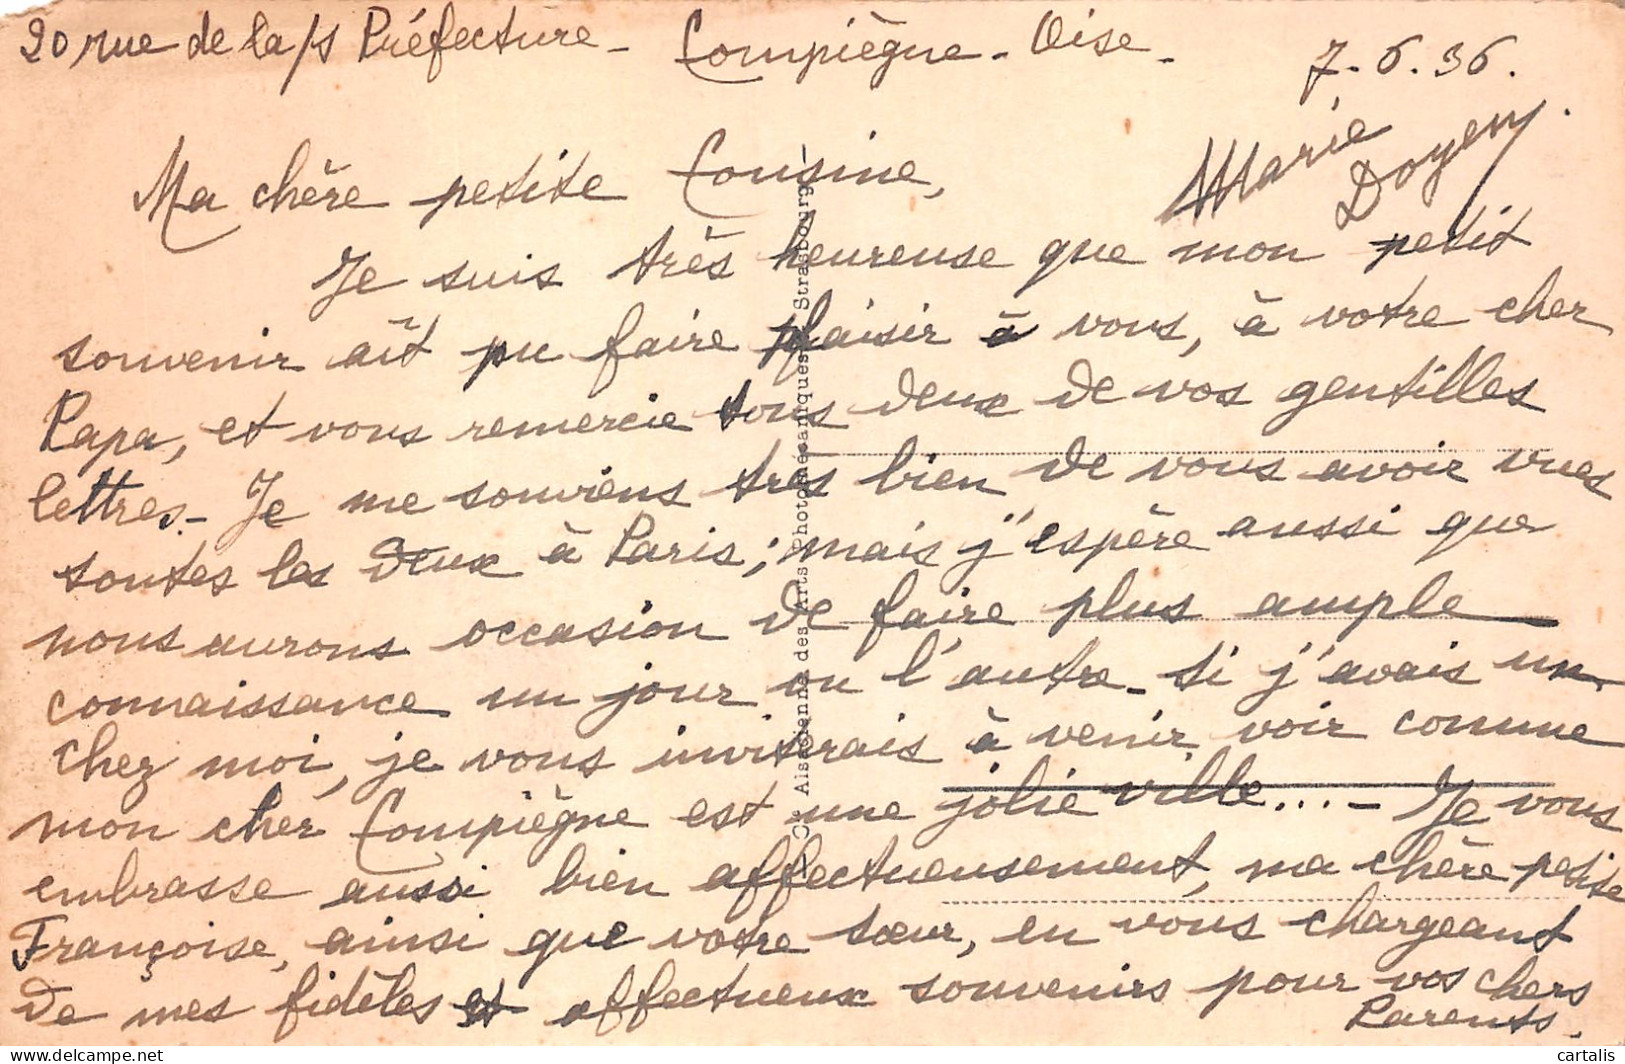 20 rue de la s/s Préfecture - Compiègne - Oise -
7-6.36.
Marie
Doyen.
Ma chère petite Cousine,
Je suis très heureuse que mon petit
souvenir aît pu faire plaisir à vous, à votre cher
Papa, et vous remercie tous deux de vos gentilles
lettres - Je me souviens très bien de vous avoir vues
toutes les deux à Paris ; mais j'espère aussi que
nous aurons occasion de faire plus ample
connaissance un jour ou l'autre - Si j'avais un
chez moi, je vous inviterais à venir voir comme
mon cher Compiègne est une jolie ville... - Je vous
embrasse aussi bien affectueusement, ma chère petite
Françoise, ainsi que votre sœur, en vous chargeant
de mes fidèles et affectueux souvenirs pour vos chers
Parents.
Cie Alsacienne des Arts Photomécaniques - Strasbourg
cartalis